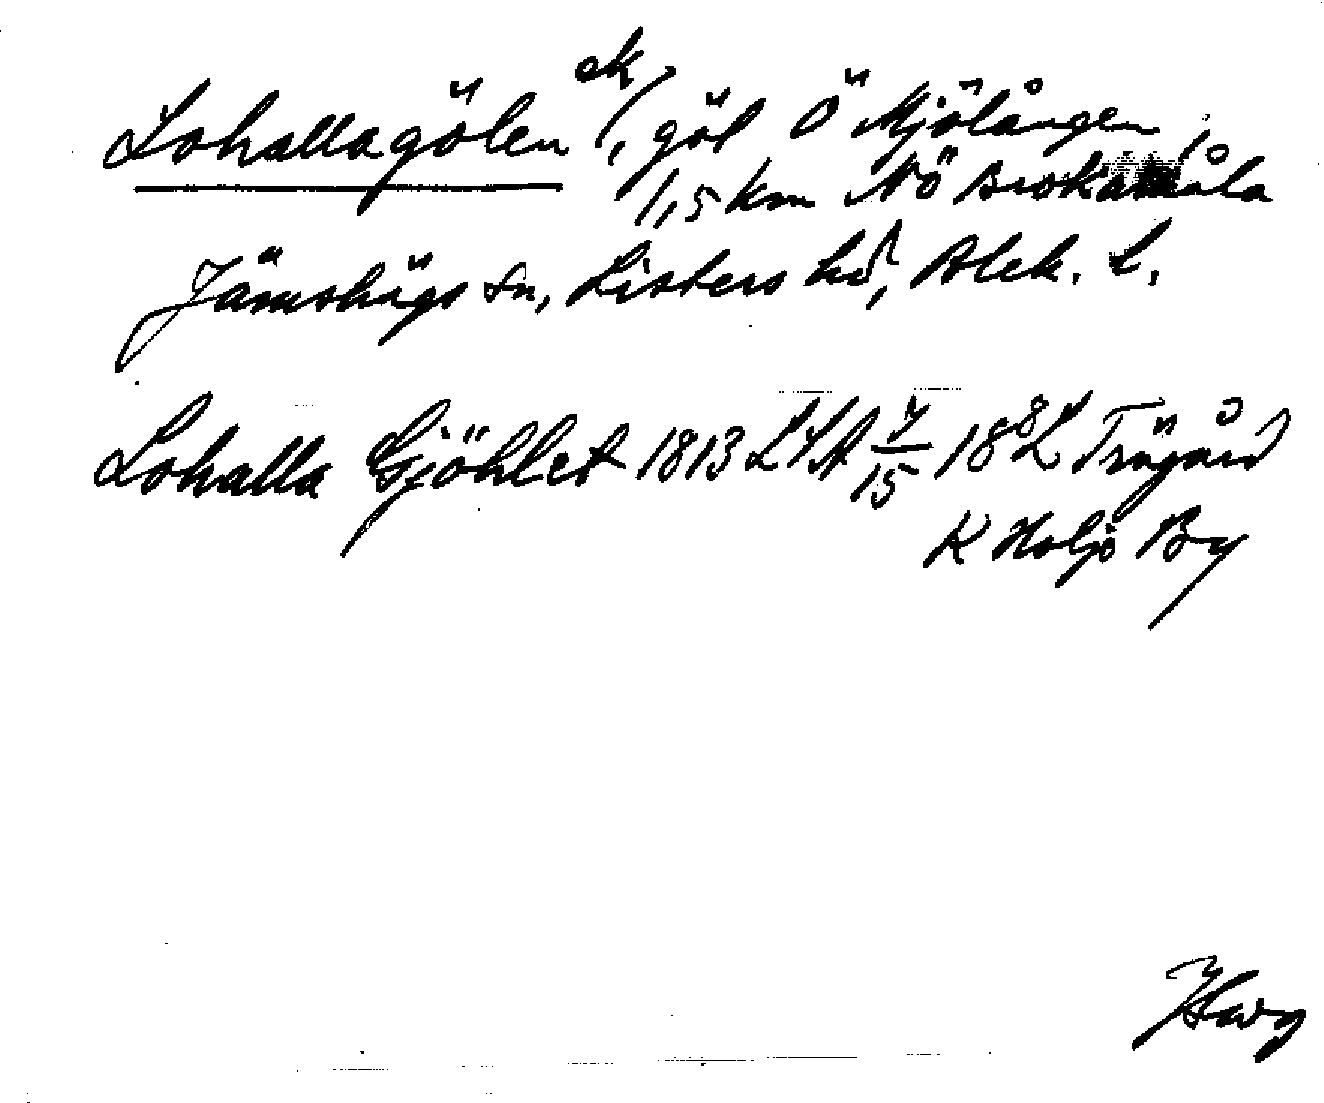 Lohallagölen ek /, göl Ö Mjölången,
1,5 km NÖ Brokamåla
Jämshögs sn, Listers hd, Blek. L.
Lohalla Gjöhlet 1813 LSA 7/15 18 8 L Trägård
K Holje By